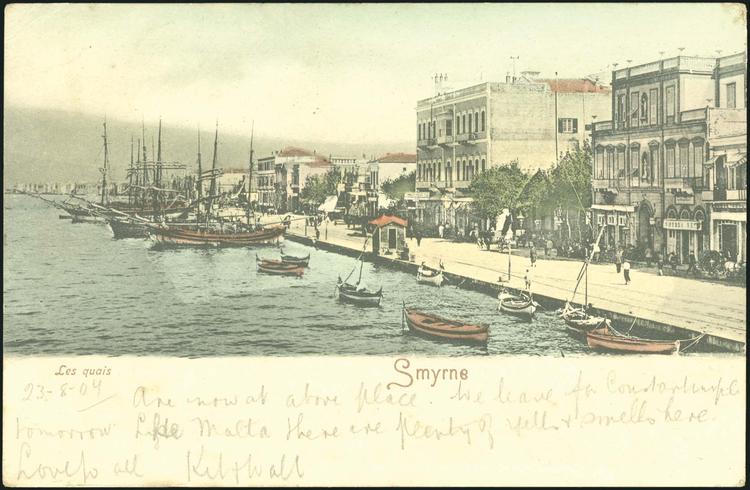 Les quais
Smyrne
23-8-04 Are now at above place. We leave for Constantinople
tomorrow Like Malta there are plenty of yells & smells here.
Love to all